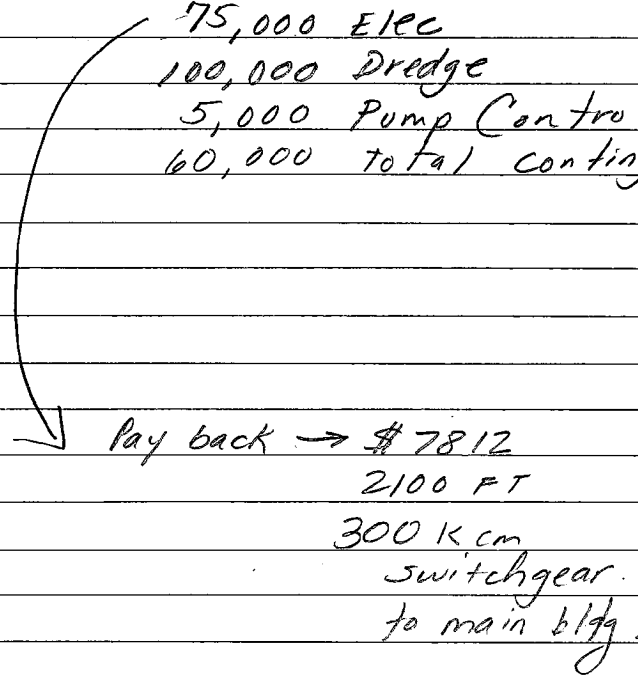 75,000 Elec
100,000 Dredge
5,000 Pump Contro
60,000 total conting
Pay back → $7812
2100 FT
300 Kcm
switchgear.
to main bldg.